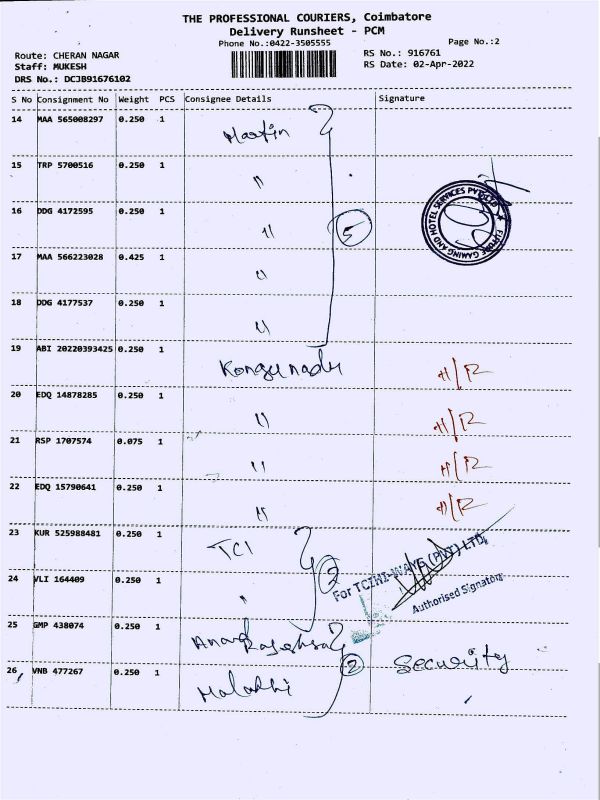 THE PROFESSIONAL COURIERS, Coimbatore
Delivery Runsheet - PCM
Phone No.:0422-3505555
Page No.:2
Route: CHERAN NAGAR
Staff: MUKESH
DRS No.: DCJB91676102
RS No.: 916761
RS Date: 02-Apr-2022
S No Consignment No Weight PCS Consignee Details Signature
14 MAA 565008297 0.250 1 Martin
15 TRP 5700516 0.250 1 "
16 DDG 4172595 0.250 1 " 5
17 MAA 566223028 0.425 1 "
18 DDG 4177537 0.250 1 "
GAMING AND HOTEL SERVICES PVT LTD
19 ABI 20220393425 0.250 1 Kongunadu H/R
20 EDQ 14878285 0.250 1 " H/R
21 RSP 1707574 0.075 1 " H/R
22 EDQ 15790641 0.250 1 " H/R
23 KUR 525988481 0.250 1 TCI
24 VLI 164409 0.250 1 " 2
For TCIHI-WAYS (PVT) LTD.
Authorised Signatory
25 GMP 438074 0.250 1
26 VNB 477267 0.250 1 Malathi 2 Security